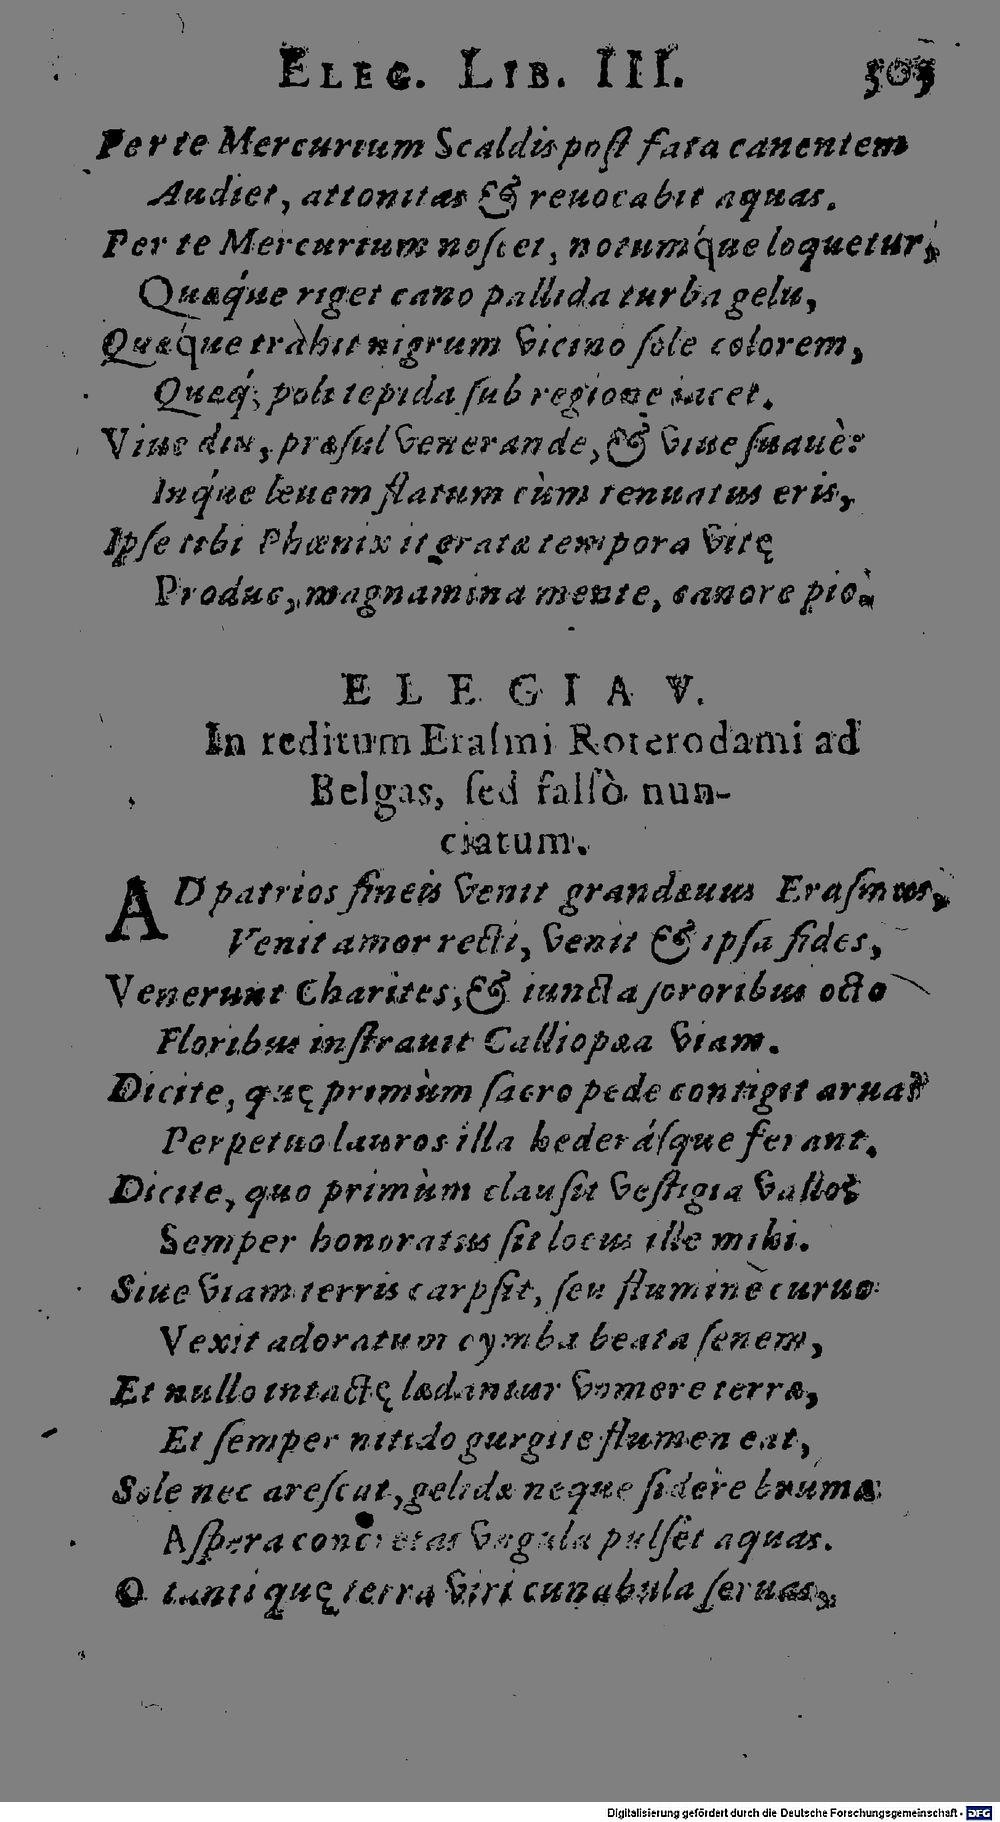 ELEG. LIB. III. 505
Per te Mercurium Scaldis poſt fata canentem
Audiet, attonitas & reuocabit aquas.
Per te Mercurium noſcet, notumq́ue loquetur,
Quæq́ue riget cano pallida turba gelu,
Quæq́ue trahit nigrum vicino ſole colorem,
Quæq́; poli tepida ſub regione iacet.
Viue diu, præſul venerande, & viue ſuauè:
Inq́ue leuem flatum cùm renuatus eris,
Ipſe tibi Phœnix iteratæ tempora vitę
Produc, magnanima mente, canore pio.

ELEGIA V.
In reditum Eraſmi Roterodami ad
Belgas, ſed falſò nun-
ciatum.
AD patrios fineis venit grandæuus Eraſmus,
Venit amor recti, venit & ipſa fides,
Venerunt Charites, & iuncta ſororibus octo
Floribus inſtrauit Calliopæa viam.
Dicite, quę primùm ſacro pede contigit arua?
Perpetuo lauros illa hederáſque ferant.
Dicite, quo primùm clauſit veſtigia vallo?
Semper honoratus ſit locus ille mihi.
Siue viam terris carpſit, ſeu flumine curuo
Vexit adoratum cymba beata ſenem,
Et nullo intactę lædantur vomere terræ,
Et ſemper nitido gurgite flumen eat,
Sole nec areſcat, gelidæ neque ſidere brumæ
Aſpera concretas vngula pulſet aquas.
O tanti quę terra viri cunabula ſeruas,
Digitalisierung gefördert durch die Deutsche Forschungsgemeinschaft - DFG